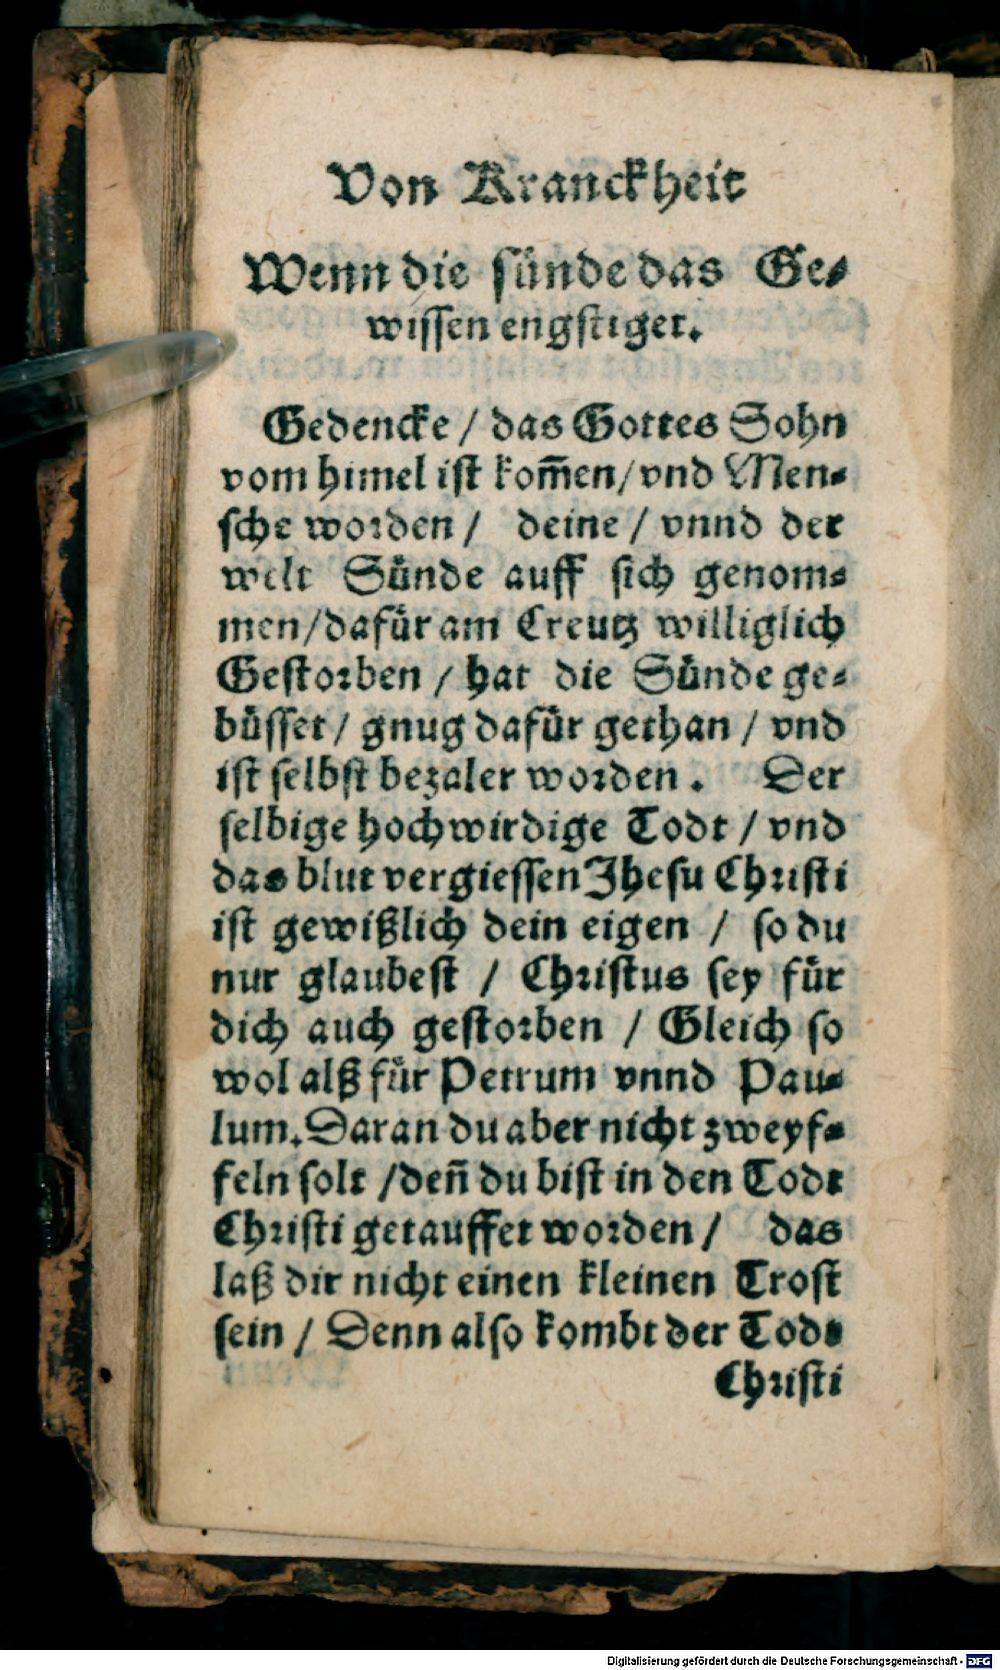 Von Kranckheit
Wenn die sünde das Ge-
wissen engstiget.
Gedencke / das Gottes Sohn
vom himel ist kom̃en / vnd Men-
sche worden / deine / vnnd der
welt Sünde auff sich genom-
men / dafür am Creutz williglich
Gestorben / hat die Sünde ge-
büsset / gnug dafür gethan / vnd
ist selbst bezaler worden. Der
selbige hochwirdige Todt / vnd
das blut vergiessen Jhesu Christi
ist gewißlich dein eigen / so du
nur glaubest / Christus sey für
dich auch gestorben / Gleich so
wol alß für Petrum vnnd Pau-
lum. Daran du aber nicht zweyf-
feln solt / deñ du bist in den Todt
Christi getauffet worden / das
laß dir nicht einen kleinen Trost
sein / Denn also kombt der Tods
Christi
Digitalisierung gefördert durch die Deutsche Forschungsgemeinschaft - DFG